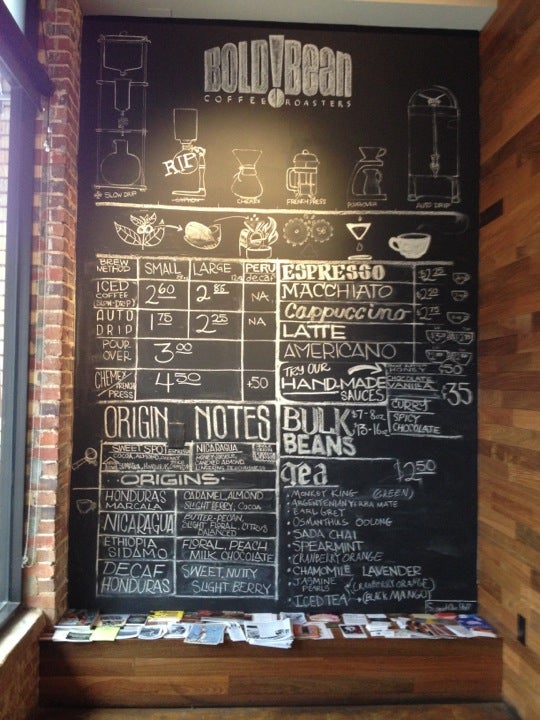 BOLD!Bean
COFFEE ROASTERS
RIP
SLOW DRIP
CHEMEX
FRENCH PRESS
POUROVER
AUTO DRIP
BREW METHOD
SMALL
LARGE
PERU decaf
ICED COFFEE (SLOW-DRIP)
2.60
2.86
NA
AUTO DRIP
1.75
2.25
NA
POUR OVER
3.00
CHEMEX FRENCH PRESS
4.50
+50
ESPRESSO $2.25
MACCHIATO
Cappuccino
LATTE
AMERICANO
TRY OUR HAND-MADE SAUCES
HONEY
CHOCOLATE
VANILLA
CURRY
SPICY CHOCOLATE
ORIGIN NOTES
SWEET SPOT ESPRESSO
COCOA, ALMOND
NICARAGUA
ORIGINS
HONDURAS MARCALA
CARAMEL, ALMOND
SLIGHT BERRY, COCOA
NICARAGUA
BUTTER-PECAN,
SLIGHT FLORAL, CITRUS
BALANCED
ETHIOPIA SIDAMO
FLORAL, PEACH
MILK CHOCOLATE
DECAF HONDURAS
SWEET, NUTTY
SLIGHT BERRY
BULK BEANS
$7-8oz
$13-16oz
tea $2.50
• MONKEY KING (GREEN)
• ARGENTENIAN YERBA MATE
• EARL GREY
• OSMANTHUS OOLONG
• SADA CHAI
• SPEARMINT
• CRANBERRY ORANGE
• CHAMOMILE LAVENDER
• JASMINE PEARLS
• ICED TEA (CRANBERRY ORANGE)
(BLACK MANGO)